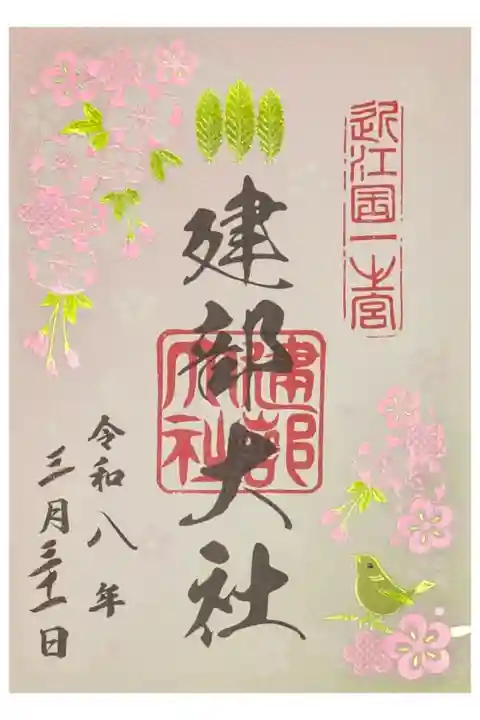 近江国一之宮
建部大社
建部大社
令和八年
三月三十一日